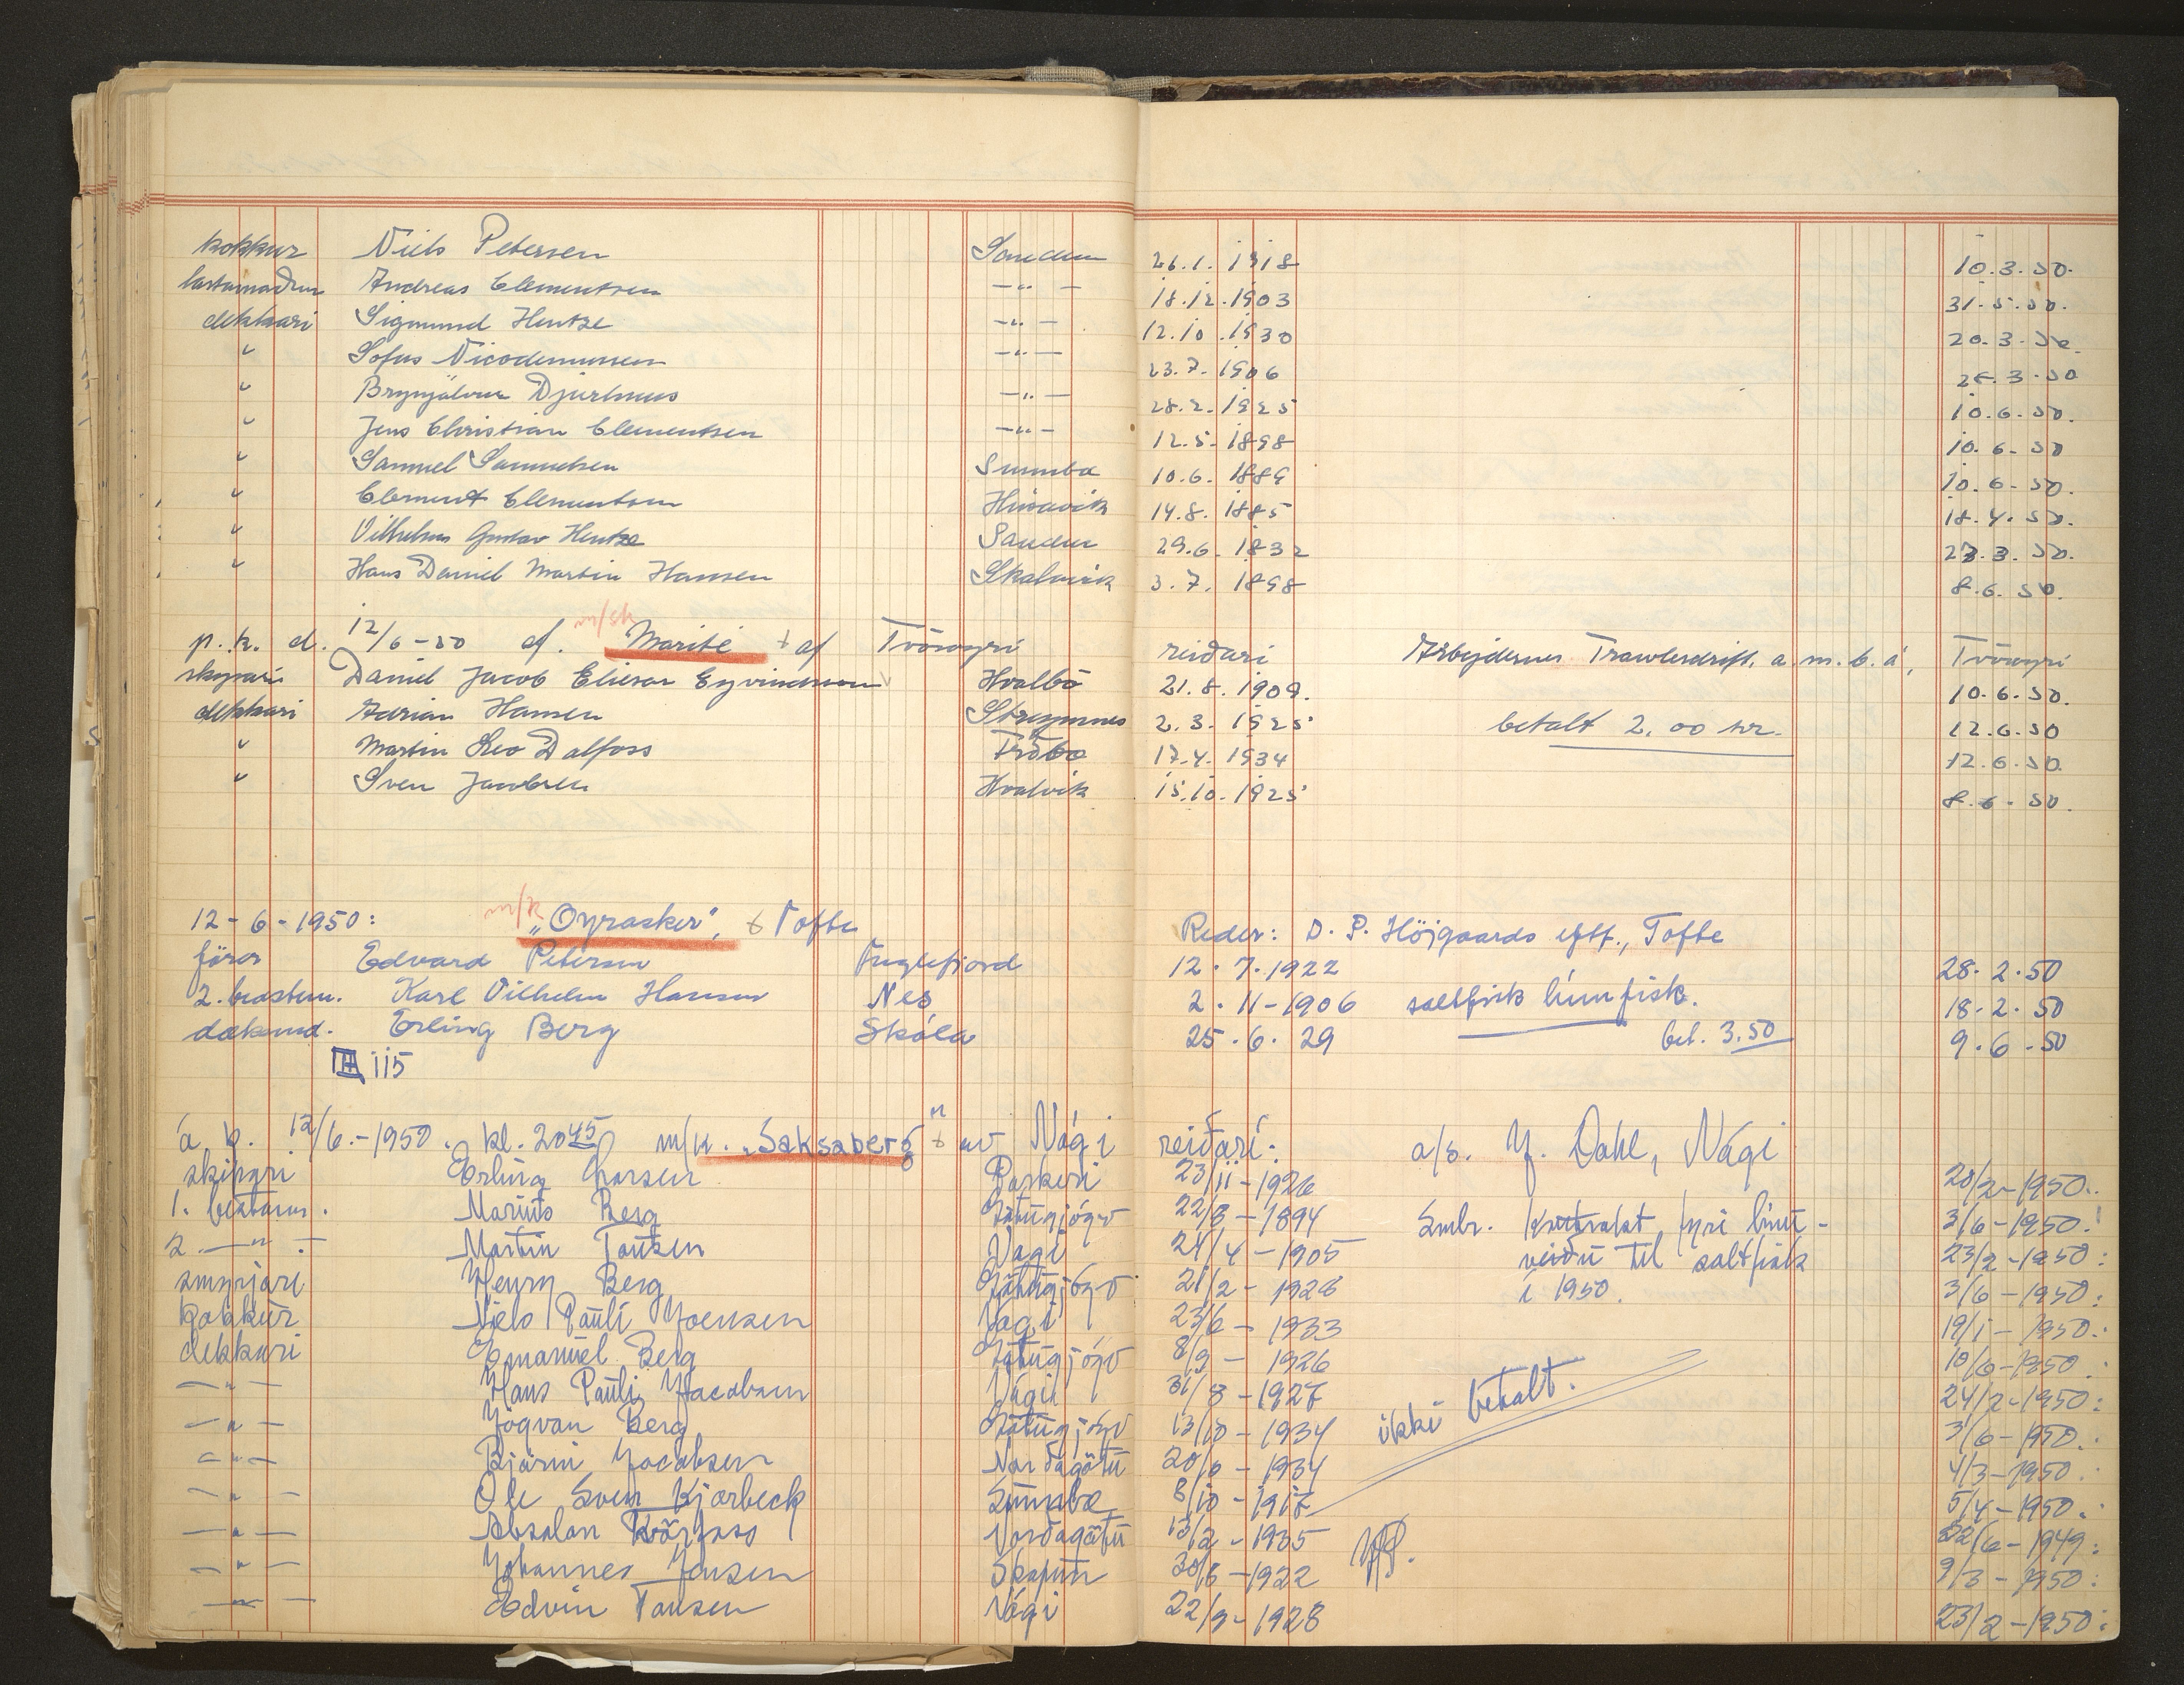 kokkur Niels Petersen Sandur 26.1.1918 10.3.50.
lastamaður Andreas Clementsen —"— 18.12.1903 31.5.50.
dekkari Sigmund Hentze —"— 12.10.1930 20.3.50.
" Sofus Nicodemussen —"— 23.7.1906 3.50
" Brynjálvur Djurhuus —"— 28.2.1925 10.6.50.
" Jens Christian Clementsen —"— 12.5.1898 10.6.50
" Samuel Samuelsen Sumba 10.6.1889 10.6.50.
" Clement Clementsen Húsavík 14.8.1885 18.4.50.
" Vilhelm Gustav Hentze Sandur 29.6. 3.50.
" Hans Daniel Martin Hansen Skálavík 3.7.1898 8.6.50.
p.k. d. 12/6-50 m/sk Marité + af Tvöroyri reiðari Arbejdernes Trawlerdrift, a.m.b.á, Tvöroyri
skipari Daniel Jacob Elieser Eyvindsson Hvalbö 21.8.1909. 10.6.50.
dekkari Adrian Hansen Streymnes 2.3.1925 betalt 2,00 kr. 12.6.50
" Martin Leo Dalfoss Fróbö 17.4.1934 12.6.50.
" Sven Jacobsen Hvalvík 15.10.1925 8.6.50.
12-6-1950: m/k „Oyrasker", Tofte Reder: D. P. Höjgaards eftf., Tofte
förer Edvard Petersen Fuglefjord 12.7.1922 28.2.50
2. bestm. Karl Vilhelm Hansen Nes 2.11-1906 saltfisk línufisk. 18.2.50
dæksmd. Erling Berg Skála 25.6.29 bet. 3.50 9.6-50
115
á k. 12/6.-1950. kl. 20 45 m/k. „Saksaberg" + av Vági reiðari: a/s. J. Dahl, Vági
skipari Erling Larsen Porkeri 23/11-1926 20/2-1950.
1. bestam. Marius Berg 22/8-1894 Smbr. Kontrakt fyri línu- 3/6-1950.
2. —"— Martin Tausen Vági 24/4-1905 veiðu til saltfisk 23/2-1950:
smyrjari Henry Berg 21/2-1928 í 1950. 3/6-1950:
kokkur Niels Pauli Joensen Vági 23/6-1933 19/1-1950.
dekkari Emanuel Berg 8/9-1926 10/6-1950.
—"— Hans Pauli Jacobsen Vági 1927 ikki betalt. 24/2-1950:
—"— Jógvan Berg 13/10-1934 3/6-1950.
—"— Bjarni Jacobsen Norðagötu 1934 4/3-1950.
—"— Ole Sven Kjærbeck Sumba 8/10- 5/4-1950.
—"— Absalon Norðagötu 13/2-1935 22/6-1949:
—"— Johannes Jensen Skopun 1922 9/3-1950:
—"— Edvin Tausen Vági 22/9-1928 23/2-1950: